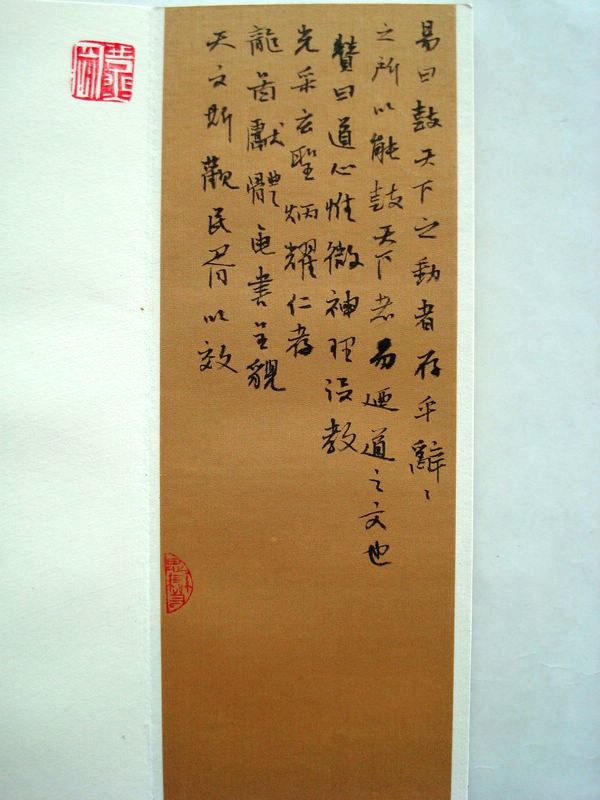 易曰鼓天下之動者存乎辭〻
之所以能鼓天下者易廼道之文也
贊曰道心惟微神理設教
光采玄聖炳耀仁孝
龍啚獻體龜書呈貌
天文斯觀民胥以效